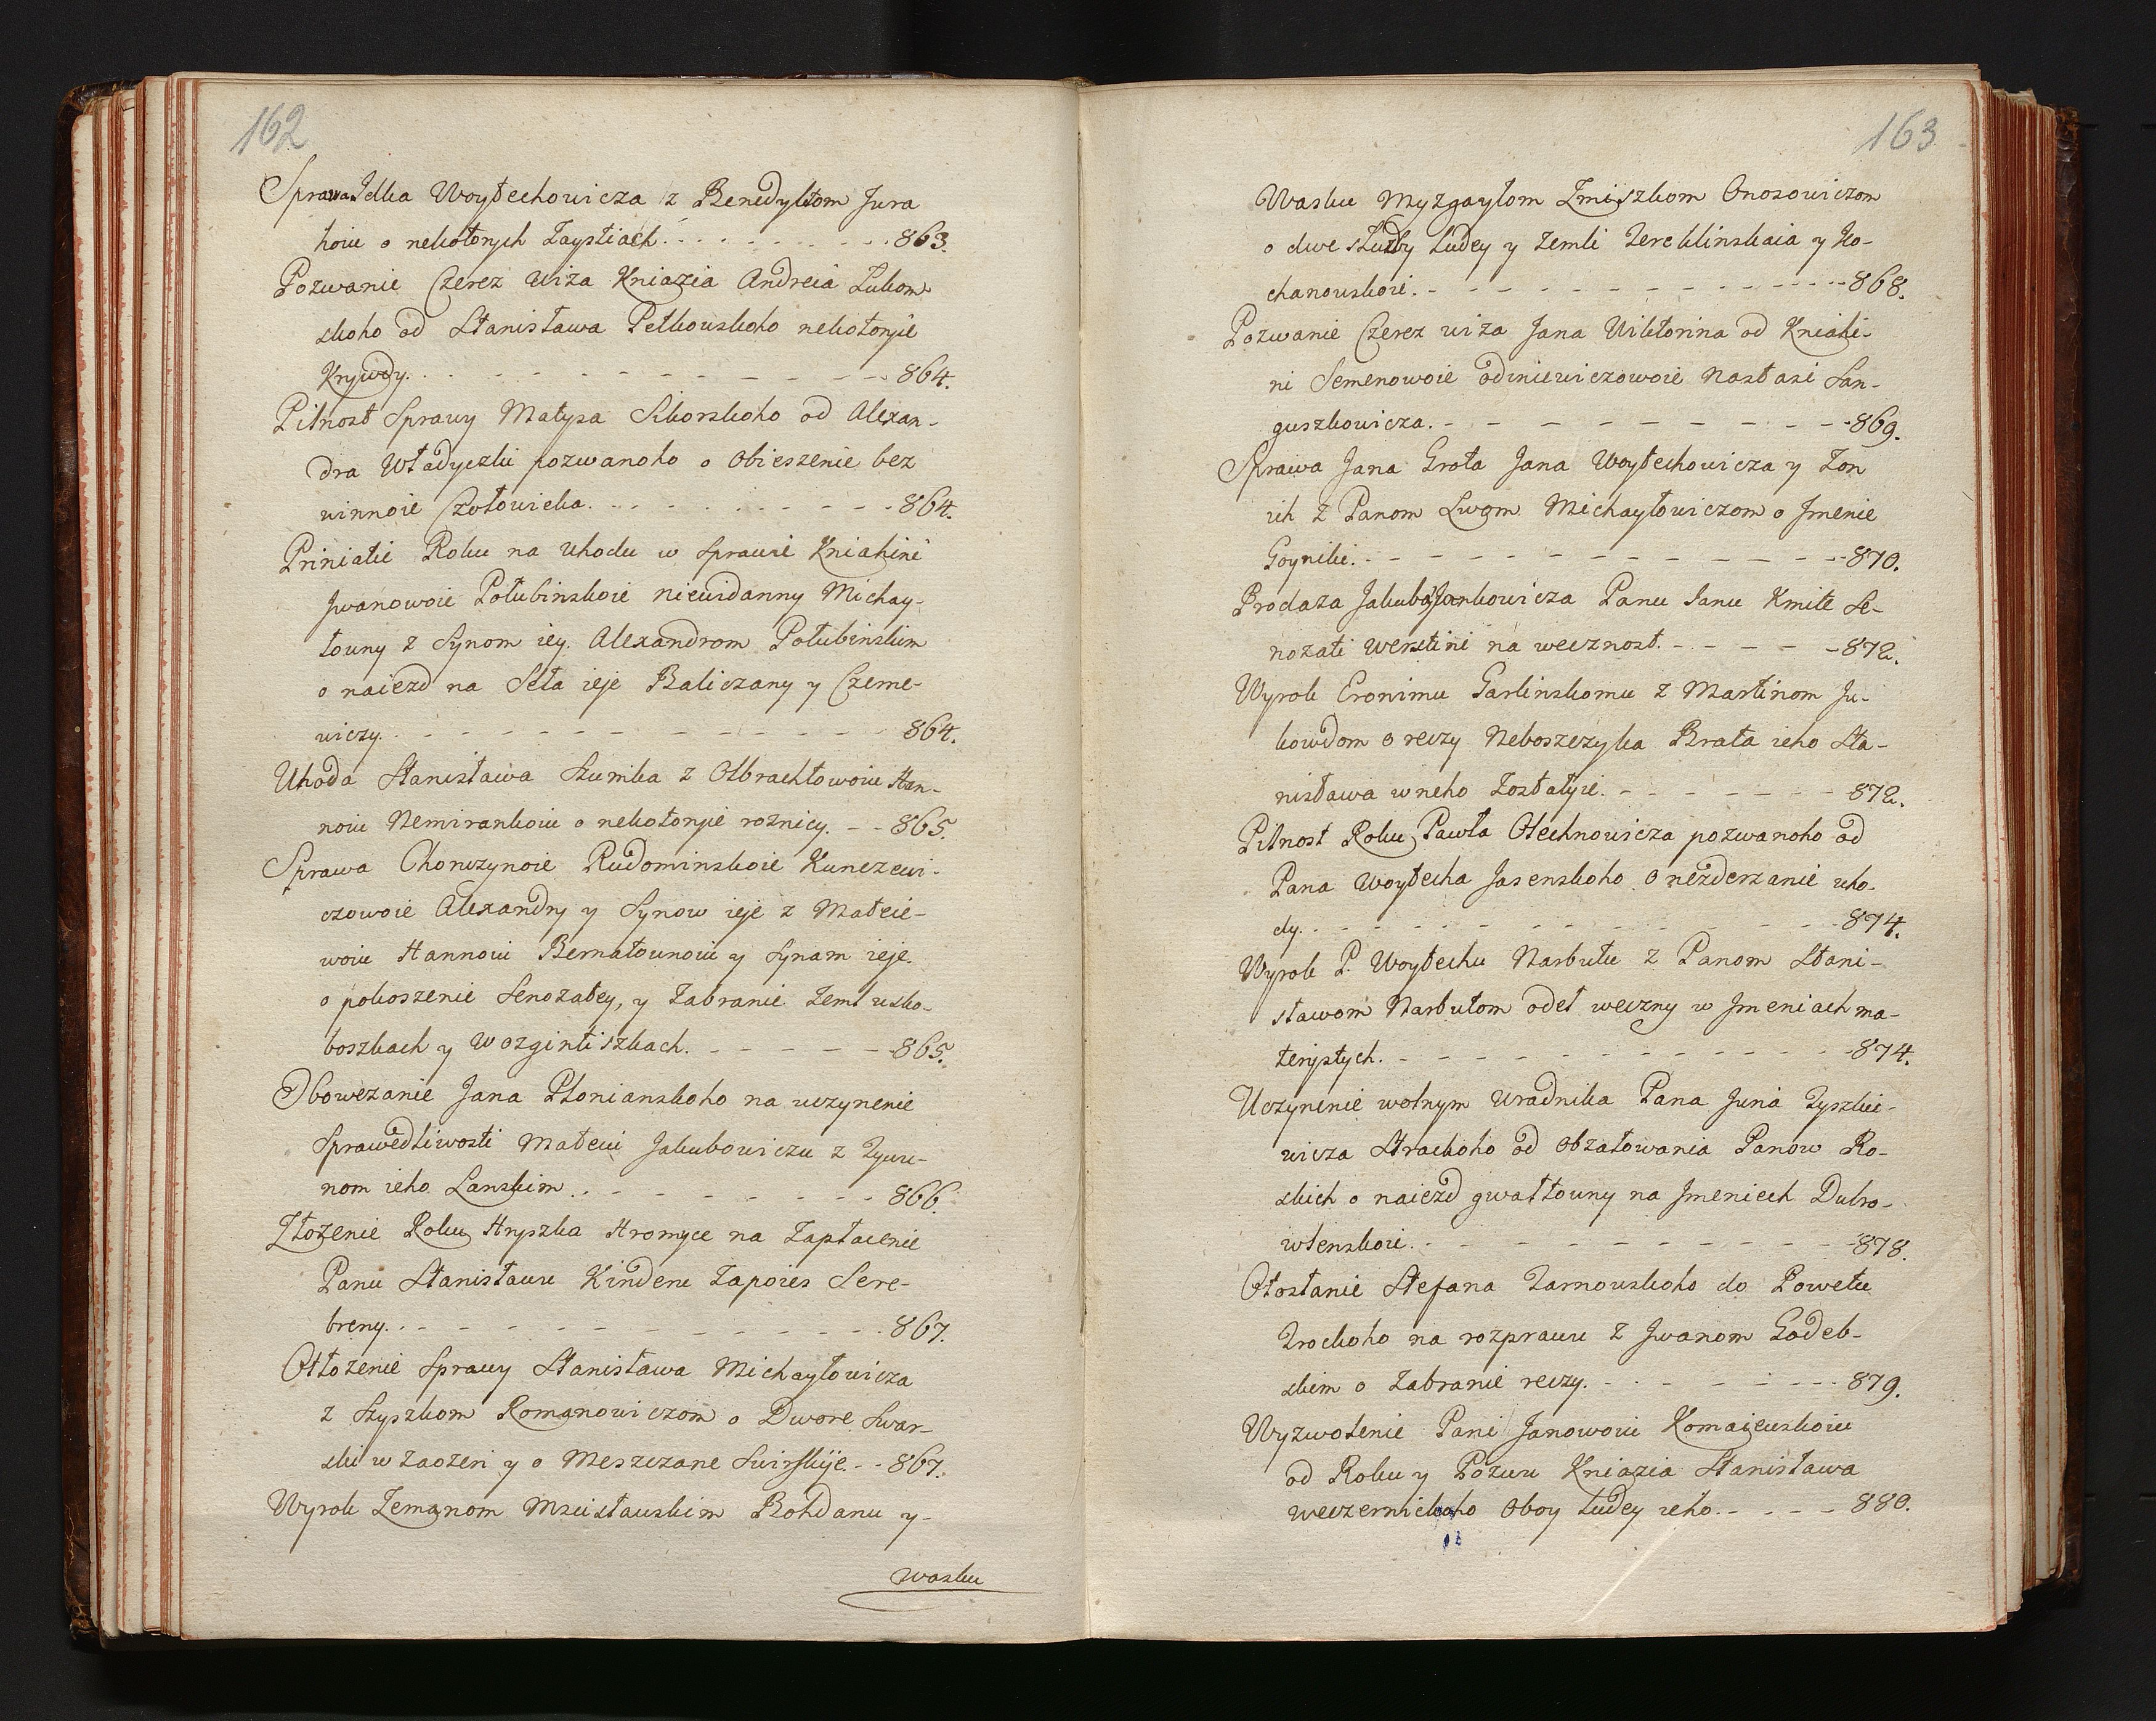 162
Sprawa Jcka Woytechowicza z Benedyktom Jura
hoiu o nekotorych Zaystiach. 863.
Pozwanie Czerez wiża Kniazia Andreia Łukom
skoho od Stanisława Petkowskoho nekotoryie
Krywdy. 864.
Pilnost Sprawy Matysa Sikorskoho od Alexan-
dra Władyczki pozwanoho o obieszenie bez
winnoie Czołowieka. 864.
Priniatie Roku na uhodu w sprawie Kniahini
Jwanowoie Połubinskoie niewidanny Michay-
łowny z Synom iey Alexandrom Połubinskim
o naiezd na Seła ieje Baliczany y Czeme-
wiczy. 864.
Uhoda Stanisława Szumka z Olbrachtowoiu Han-
noiu Nemirankoiu o nekotoryie roznicy. 865.
Sprawa Chorużynoie Rudominskoie Kuncewi-
czowoie Alexandry y Synow ieje z Mateie-
woiu Hannoiu Bernatownoiu y Synam ieje
o pokoszenie Senozatey, y Zabranie Zeml usko-
boszkach y Wozgintiszkach. 865.
Obowezanie Jana Płonianskoho na uczynenie
Sprawedliwosti Mateiu Jakubowiczu z Zywu-
nom ieho Lanskim. 866.
Złożenie Roku Hryszka Hromyce na Zapłacenie
Panu Stanisławu Kinderu Zapoies Sere-
breny. 867.
Otłożenie Sprawy Stanisława Michayłowicza
z Szyszkom Romanowiczom o Dwore Swar-
ski w Zaozeri y o Meszczane Swirskije. 867.
Wyrok Zemianom Mscisławskim Bohdanu y
wasku
163
Wasku Myzgayłom Zmiszkom Onosowiczom
o dwe służby ludey y Zemli Jereklinskaia y Ko-
chanowskoie. 868.
Pozwanie Czerez wiża Jana Wiktorina od Kniahi-
ni Semenowoie odiniewiczowoie Nastasi San-
guszkowicza. 869.
Sprawa Jana Grota Jana Woytechowicza y Zon
ich z Panom Lwom Michayłowiczom o Jmenie
Goyniki. 870.
Prodaza Jakuba Jankowicza Panu Janu Kmite Se-
nozati Werstini na wecznost. 872.
Wyrok Eronimu Garlinskomu z Martinom Ju-
kowdom o reczy Neboszczyka Brata ieho Sta-
nisława wneho Zostałyie. 872.
Pilnost Roku Pawła Olechnowicza pozwanoho od
Pana Woytecha Jasenskoho o nezderzanie uho-
dy. 874.
Wyrok P. Woytechu Narbutu z Panom Stani-
sławom Narbutom odeł weczny w Jmeniach ma-
terystych. 874.
Uczynenie wolnym Uradnika Pana Juria Tyszkie-
wicza Strackoho od Obzałowania Panow Ro-
skich o naiezd gwałtowny na Jmeniech Dubro-
wlenskoie. 878.
Otosłanie Stefana Tarnowskoho do Powetu
Trockoho na rozprawu z Jwanom Godeb-
skim o Zabranie reczy. 879.
Wyzwolenie Pani Janowoiu Komaiewskoiu
od Roku y Pozwu Kniazia Stanisława
Weczernickoho oboy ludey ieho. 880.